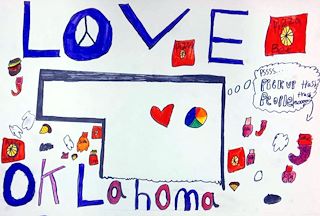 LOVE
PSSSS...
PICK UP trash
PEOPLE!
OKLahoma